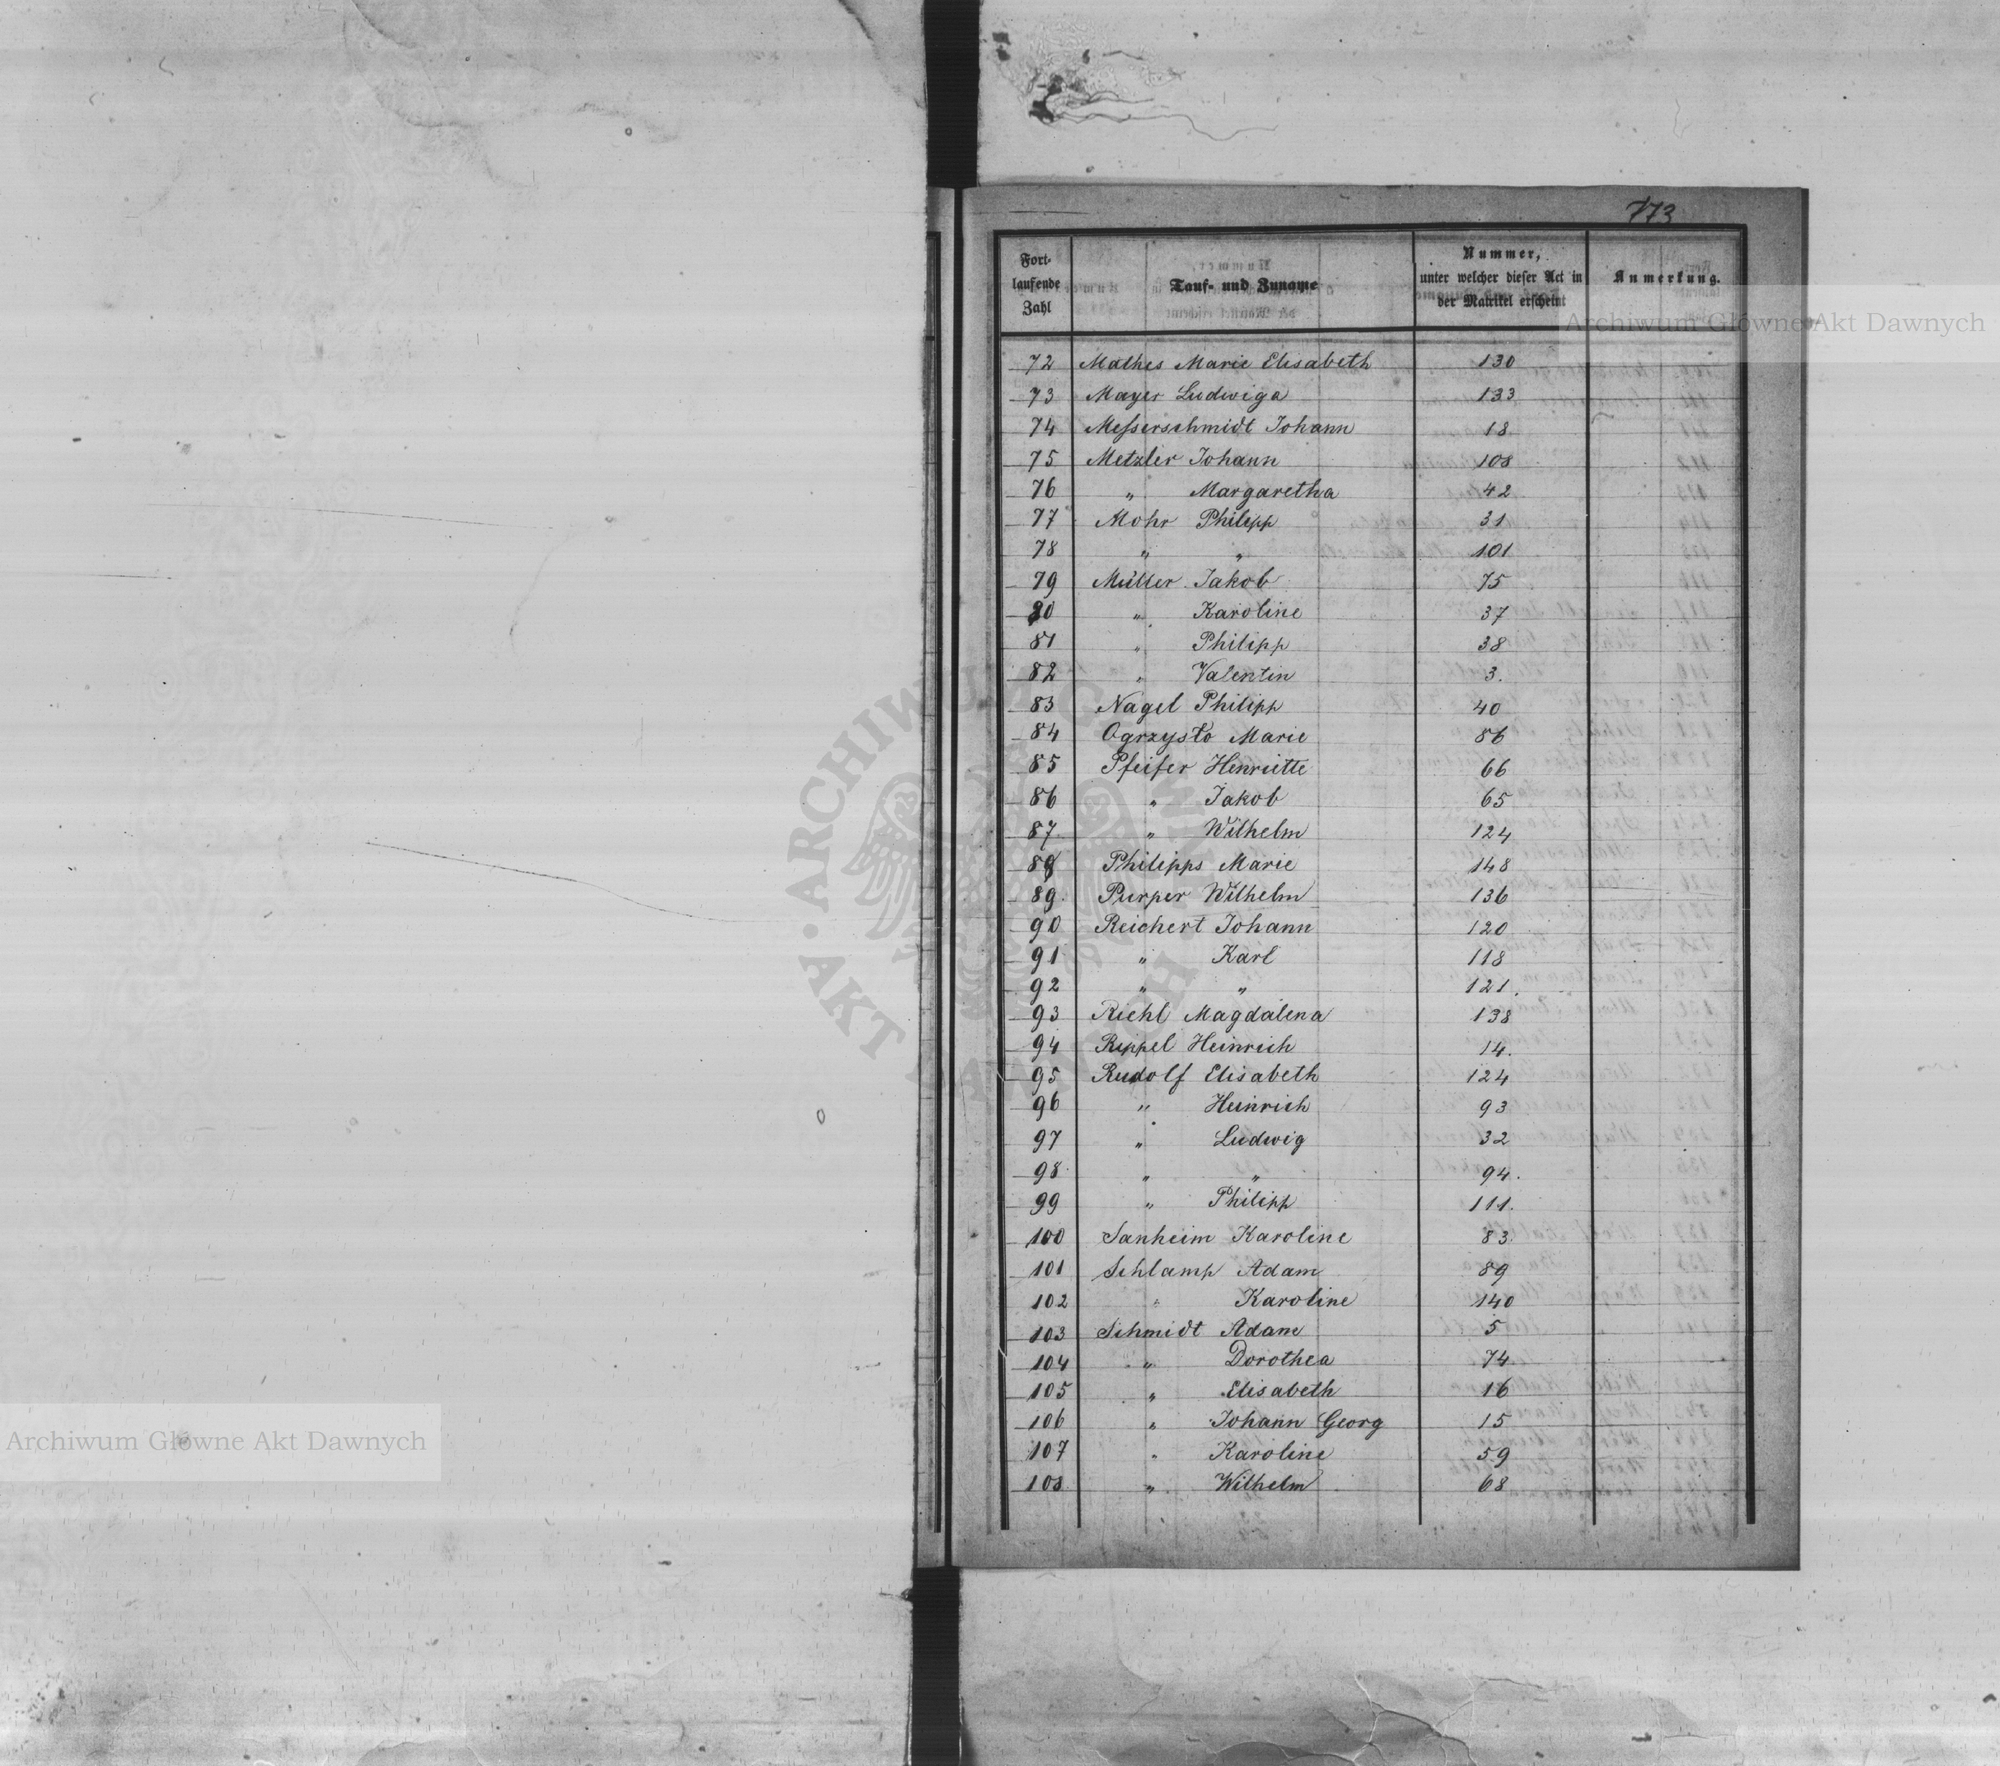 773
Fort-
laufende
Zahl
Tauf- und Zuname
Nummer,
unter welcher dieser Act in
der Matrikel erscheint
Anmerkung.
72 Mathes Marie Elisabeth 130
73 Mayer Ludwiga 133
74 Meſserschmidt Johann 18
75 Metzler Johann 108
76 " Margaretha 42
77 Mohr Philipp 31
78 " " 101
79 Müller Jakob 75
80 " Karoline 37
81 " Philipp 38
82 " Valentin 3.
83 Nagel Philipp 40
84 Ogrzysło Marie 86
85 Pfeifer Henriette 66
86 " Jakob 65
87 " Wilhelm 124
88 Philipps Marie 148
89. Purper Wilhelm 136
90 Reichert Johann 120
91 " Karl 118
92 " " 121.
93 Riehl Magdalena 138
94 Rippel Heinrich 14.
95 Rudolf Elisabeth 124
96 " Heinrich 93
97 " Ludwig 32
98 " " 94.
99 " Philipp 111.
100 Sanheim Karoline 83.
101 Schlamp Adam 89
102 " Karoline 140
103 Schmidt Adam 5
104 " Dorothea 74
105 " Elisabeth 16
106 " Johann Georg 15
107 " Karoline 59
108 " Wilhelm 68
Archiwum Główne Akt Dawnych
Archiwum Główne Akt Dawnych